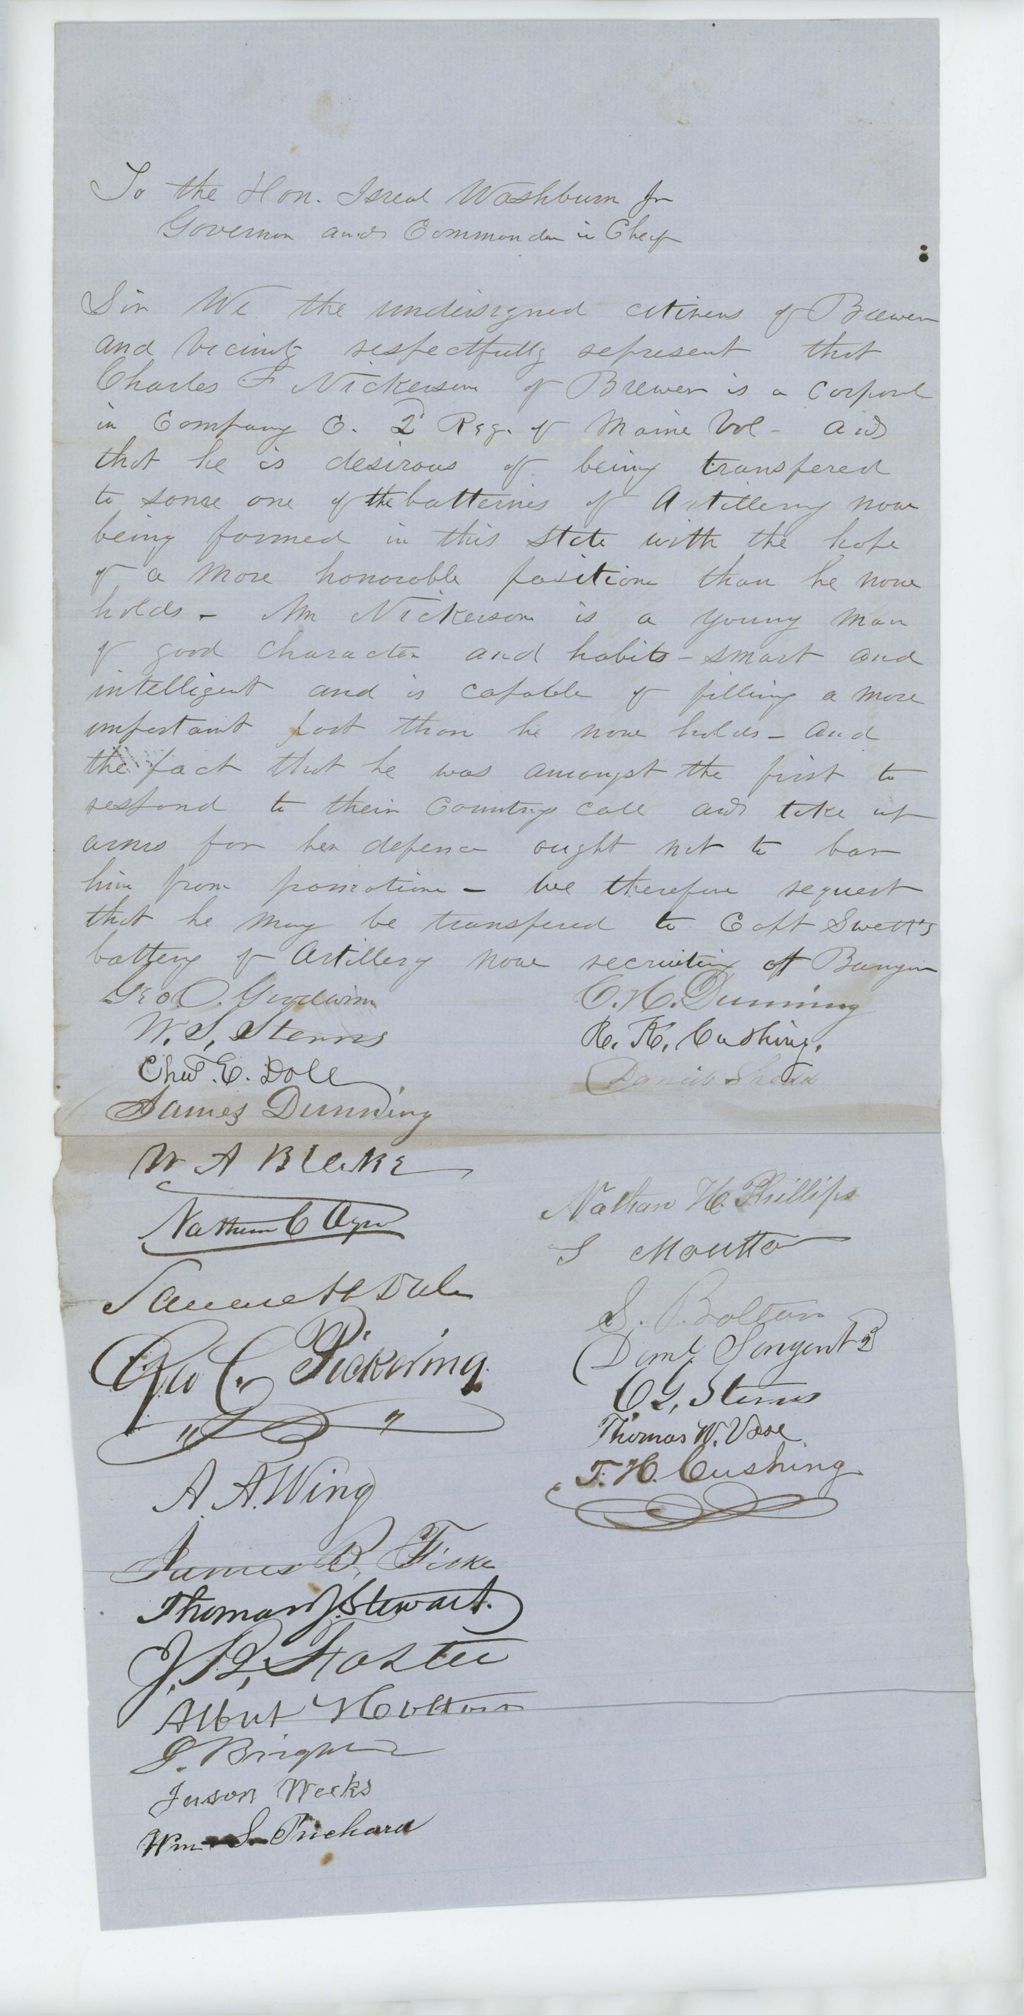 To the Hon. Isreal Washburn Jr
Governor and Commander in Cheif
Sir We the undersigned citizens of Brewer
and vicinity respectfully represent that
Charles F Nickerson of Brewer is a Corporal
in Company C. 2d Reg. of Maine Vol - and
that he is desirous of being transfered
to some one of the batteries of Artillery now
being formed in this State with the hope
of a more honorable position than he now
holds - Mr Nickerson is a young man
of good character and habits - smart and
intelligent and is capable of filling a more
important post than he now holds - and
the fact that he was amongst the first to
respond to their Countrys call and take up
arms for her defence ought not to bar
him from promotion - We therefore request
that he may be transfered to Capt Swett's
battery of Artillery now recruiting at Bangor
Geo. O. Goodwin
W. S. Sterns
Chas. E. Dole
James Dunning
W A Blake
Nathan C Ayer
H Dale
Geo C. Pickering
" "
A. A. Wing
James B. Fiske
Thomas J. Stewart.
J. B. Foster
Albert Holton
Jason Weeks
Wm S. Prichard
C. H. Dunning
R. K. Cushing.
Nathan H. Phillips
S
S. Bolton
Danl Sargent 2d
C. G. Sterns
Thomas W. Vose
T. H. Cushing